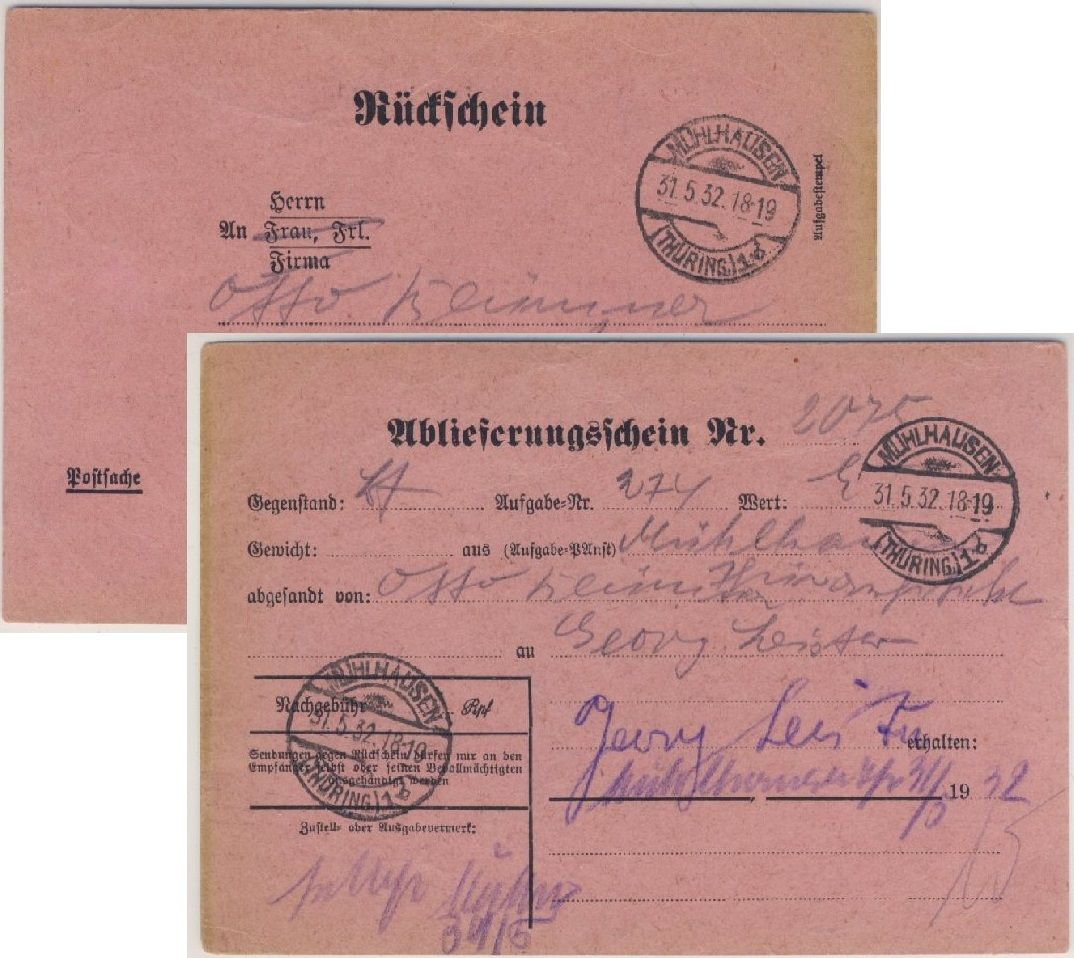 Rückschein
MÜHLHAUSEN
31.5.32.18-19
(THÜRING.) 1 d
Aufgabestempel
Herrn
An Frau, Frl.
Firma
Otto
Postsache
Ablieferungsschein Nr. 2075
MÜHLHAUSEN
31.5.32.18-19
(THÜRING.) 1 d
Gegenstand: Aufgabe-Nr. 274 Wert:
Gewicht: aus (Aufgabe-PAnst) Mühlhau
abgesandt von: Otto
an Georg Leister
MÜHLHAUSEN
31.5.32.18-19
(THÜRING.) 1 d
Nachgebühr Rpf
Sendungen gegen Rückschein dürfen nur an den
Empfänger selbst oder seinen Bevollmächtigten
ausgehändigt werden
Zustell- oder Ausgabevermerk:
31/5
Georg Leister
erhalten:
31/5 19 32